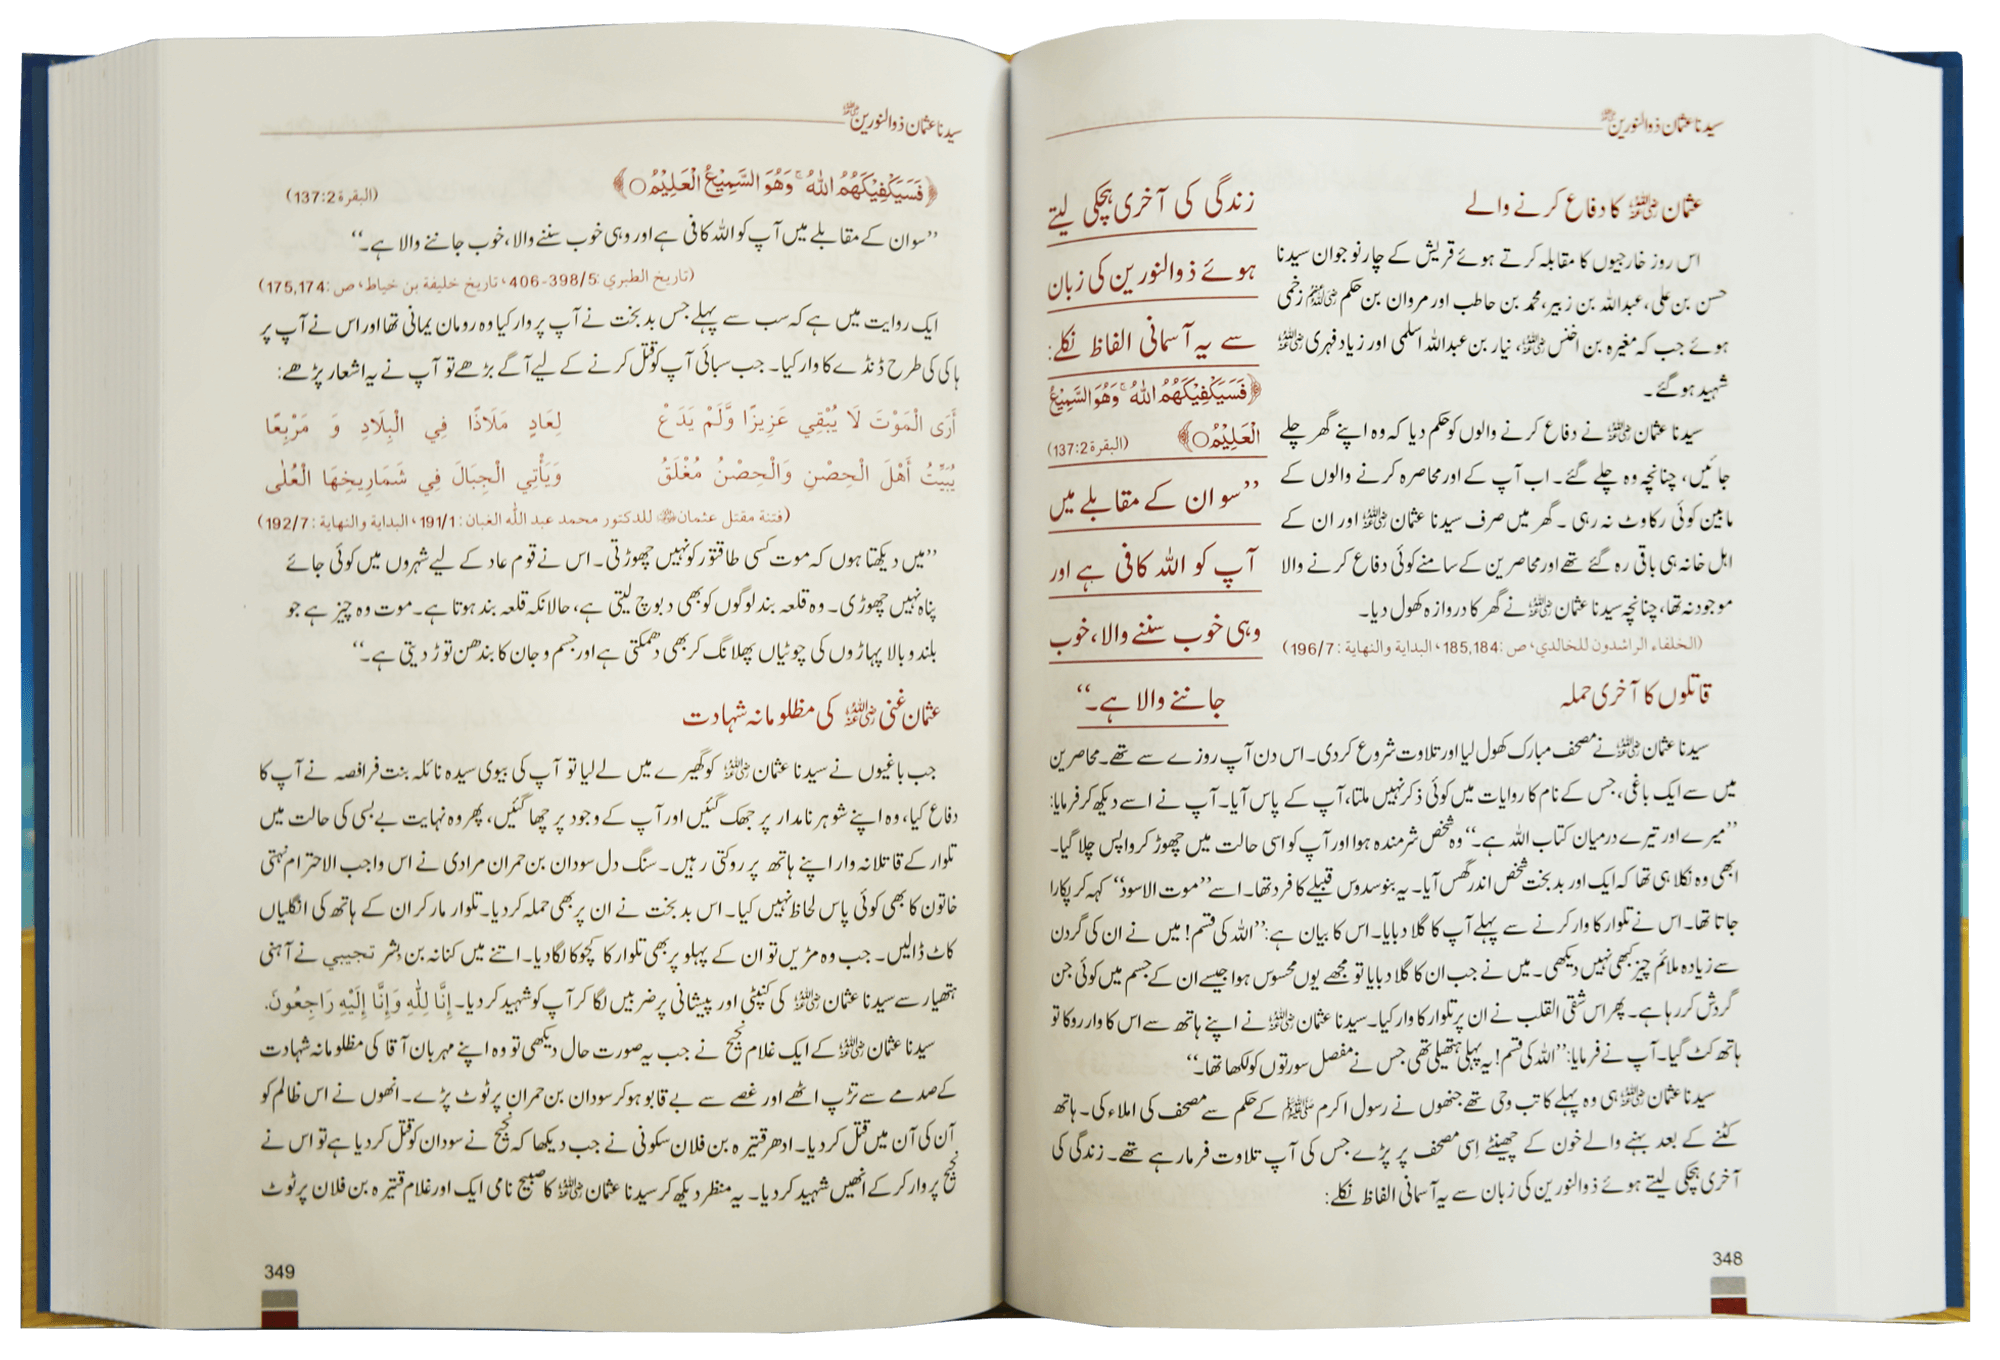 سیدنا عثمان ذوالنورین رضی اللہ عنہ
عثمان رضی اللہ عنہ کا دفاع کرنے والے
اس روز خارجیوں کا مقابلہ کرتے ہوئے قریش کے چار نوجوان سیدنا
حسن بن علی، عبداللہ بن زبیر، محمد بن حاطب اور مروان بن حکم رضی اللہ عنہم زخمی
ہوئے جب کہ مغیرہ بن اخنس رضی اللہ عنہ، نیار بن عبداللہ اسلمی اور زیاد فہری رضی اللہ عنہ
شہید ہو گئے۔
سیدنا عثمان رضی اللہ عنہ نے دفاع کرنے والوں کو حکم دیا کہ وہ اپنے گھر چلے
جائیں، چنانچہ وہ چلے گئے۔ اب آپ کے اور محاصرہ کرنے والوں کے
مابین کوئی رکاوٹ نہ رہی۔ گھر میں صرف سیدنا عثمان رضی اللہ عنہ اور ان کے
اہل خانہ ہی باقی رہ گئے تھے اور محاصرین کے سامنے کوئی دفاع کرنے والا
موجود نہ تھا، چنانچہ سیدنا عثمان رضی اللہ عنہ نے گھر کا دروازہ کھول دیا۔
(الخلفاء الراشدون للخالدي، ص: 185,184، البداية والنهاية: 196/7)
زندگی کی آخری ہچکی لیتے
ہوئے ذوالنورین کی زبان
سے یہ آسمانی الفاظ نکلے:
﴿فَسَيَكْفِيكَهُمُ اللّٰهُ ۚ وَهُوَ السَّمِيْعُ
الْعَلِيْمُ ○﴾ (البقرة 137:2)
’’سو ان کے مقابلے میں
آپ کو اللہ کافی ہے اور
وہی خوب سننے والا، خوب
جاننے والا ہے۔‘‘
قاتلوں کا آخری حملہ
سیدنا عثمان رضی اللہ عنہ نے مصحف مبارک کھول لیا اور تلاوت شروع کر دی۔ اس دن آپ روزے سے تھے۔ محاصرین
میں سے ایک باغی، جس کے نام کا روایات میں کوئی ذکر نہیں ملتا، آپ کے پاس آیا۔ آپ نے اسے دیکھ کر فرمایا:
’’میرے اور تیرے درمیان کتاب اللہ ہے۔‘‘ وہ شخص شرمندہ ہوا اور آپ کو اسی حالت میں چھوڑ کر واپس چلا گیا۔
ابھی وہ نکلا ہی تھا کہ ایک اور بدبخت شخص اندر گھس آیا۔ یہ بنو سدوس قبیلے کا فرد تھا۔ اسے ’’موت الاسود‘‘ کہہ کر پکارا
جاتا تھا۔ اس نے تلوار کا وار کرنے سے پہلے آپ کا گلا دبایا۔ اس کا بیان ہے: ’’اللہ کی قسم! میں نے ان کی گردن
سے زیادہ ملائم چیز کبھی نہیں دیکھی۔ میں نے جب ان کا گلا دبایا تو مجھے یوں محسوس ہوا جیسے ان کے جسم میں کوئی جن
گردش کر رہا ہے۔ پھر اس شقی القلب نے ان پر تلوار کا وار کیا۔ سیدنا عثمان رضی اللہ عنہ نے اپنے ہاتھ سے اس کا وار روکا تو
ہاتھ کٹ گیا۔ آپ نے فرمایا: ’’اللہ کی قسم! یہ پہلی ہتھیلی تھی جس نے مفصل سورتوں کو لکھا تھا۔‘‘
سیدنا عثمان رضی اللہ عنہ ہی وہ پہلے کاتب وحی تھے جنھوں نے رسول اکرم ﷺ کے حکم سے مصحف کی املاء کی۔ ہاتھ
کٹنے کے بعد بہنے والے خون کے چھینٹے اِسی مصحف پر پڑے جس کی آپ تلاوت فرما رہے تھے۔ زندگی کی
آخری ہچکی لیتے ہوئے ذوالنورین کی زبان سے یہ آسمانی الفاظ نکلے:
348
سیدنا عثمان ذوالنورین رضی اللہ عنہ
﴿فَسَيَكْفِيكَهُمُ اللّٰهُ ۚ وَهُوَ السَّمِيْعُ الْعَلِيْمُ ○﴾ (البقرة 137:2)
’’سو ان کے مقابلے میں آپ کو اللہ کافی ہے اور وہی خوب سننے والا، خوب جاننے والا ہے۔‘‘
(تاريخ الطبري: 398/5-406، تاريخ خليفة بن خياط، ص: 175,174)
ایک روایت میں ہے کہ سب سے پہلے جس بدبخت نے آپ پر وار کیا وہ رومان یمانی تھا اور اس نے آپ پر
ہاکی کی طرح ڈنڈے کا وار کیا۔ جب سبائی آپ کو قتل کرنے کے لیے آگے بڑھے تو آپ نے یہ اشعار پڑھے:
أَرَى الْمَوْتَ لَا يُبْقِي عَزِيزًا وَّلَمْ يَدَعْ لِعَادٍ مَلَاذًا فِي الْبِلَادِ وَ مَرْبِعًا
يُبَيِّتُ أَهْلَ الْحِصْنِ وَالْحِصْنُ مُغْلَقُ وَيَأْتِي الْجِبَالَ فِي شَمَارِيخِهَا الْعُلٰى
(فتنة مقتل عثمان رضی اللہ عنہ للدكتور محمد عبد اللّٰه الغبان: 191/1، البداية والنهاية: 192/7)
’’میں دیکھتا ہوں کہ موت کسی طاقتور کو نہیں چھوڑتی۔ اس نے قوم عاد کے لیے شہروں میں کوئی جائے
پناہ نہیں چھوڑی۔ وہ قلعہ بند لوگوں کو بھی دبوچ لیتی ہے، حالانکہ قلعہ بند ہوتا ہے۔ موت وہ چیز ہے جو
بلند و بالا پہاڑوں کی چوٹیاں پھلانگ کر بھی آ دھمکتی ہے اور جسم و جان کا بندھن توڑ دیتی ہے۔‘‘
عثمان غنی رضی اللہ عنہ کی مظلومانہ شہادت
جب باغیوں نے سیدنا عثمان رضی اللہ عنہ کو گھیرے میں لے لیا تو آپ کی بیوی سیدہ نائلہ بنت فرافصہ نے آپ کا
دفاع کیا، وہ اپنے شوہر نامدار پر جھک گئیں اور آپ کے وجود پر چھا گئیں، پھر وہ نہایت بے بسی کی حالت میں
تلوار کے قاتلانہ وار اپنے ہاتھ پر روکتی رہیں۔ سنگ دل سودان بن حمران مرادی نے اس واجب الاحترام نہتی
خاتون کا بھی کوئی پاس لحاظ نہیں کیا۔ اس بدبخت نے ان پر بھی حملہ کر دیا۔ تلوار مار کر ان کے ہاتھ کی انگلیاں
کاٹ ڈالیں۔ جب وہ مڑیں تو ان کے پہلو پر بھی تلوار کا کچوکا لگا دیا۔ اتنے میں کنانہ بن بشر تجیبي نے آہنی
ہتھیار سے سیدنا عثمان رضی اللہ عنہ کی کنپٹی اور پیشانی پر ضربیں لگا کر آپ کو شہید کر دیا۔ إِنَّا لِلّٰهِ وَإِنَّا إِلَيْهِ رَاجِعُونَ.
سیدنا عثمان رضی اللہ عنہ کے ایک غلام نجیح نے جب یہ صورت حال دیکھی تو وہ اپنے مہربان آقا کی مظلومانہ شہادت
کے صدمے سے تڑپ اٹھے اور غصے سے بے قابو ہو کر سودان بن حمران پر ٹوٹ پڑے۔ انھوں نے اس ظالم کو
آن کی آن میں قتل کر دیا۔ ادھر قتیرہ بن فلان سکونی نے جب دیکھا کہ نجیح نے سودان کو قتل کر دیا ہے تو اس نے
نجیح پر وار کر کے انھیں شہید کر دیا۔ یہ منظر دیکھ کر سیدنا عثمان رضی اللہ عنہ کا صبیح نامی ایک اور غلام قتیرہ بن فلان پر ٹوٹ
349